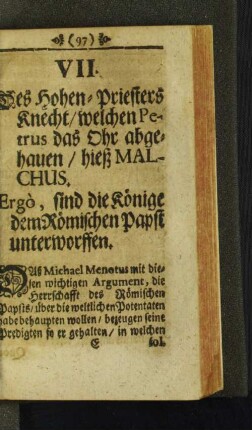 (97)
VII.
Des Hohen-Priesters
Knecht/welchen Pe-
trus das Ohr abge-
hauen / hieß MAL-
CHUS.
Ergò, sind die Könige
dem Römischen Papst
unterworffen.
Daß Michael Menotus mit die-
sen wichtigen Argument, die
Herrschafft des Römischen
Papsts/über die weltlichen Potentaten
habe behaupten wollen / bezeugen seine
Predigten so er gehalten / in welchen
E fol.